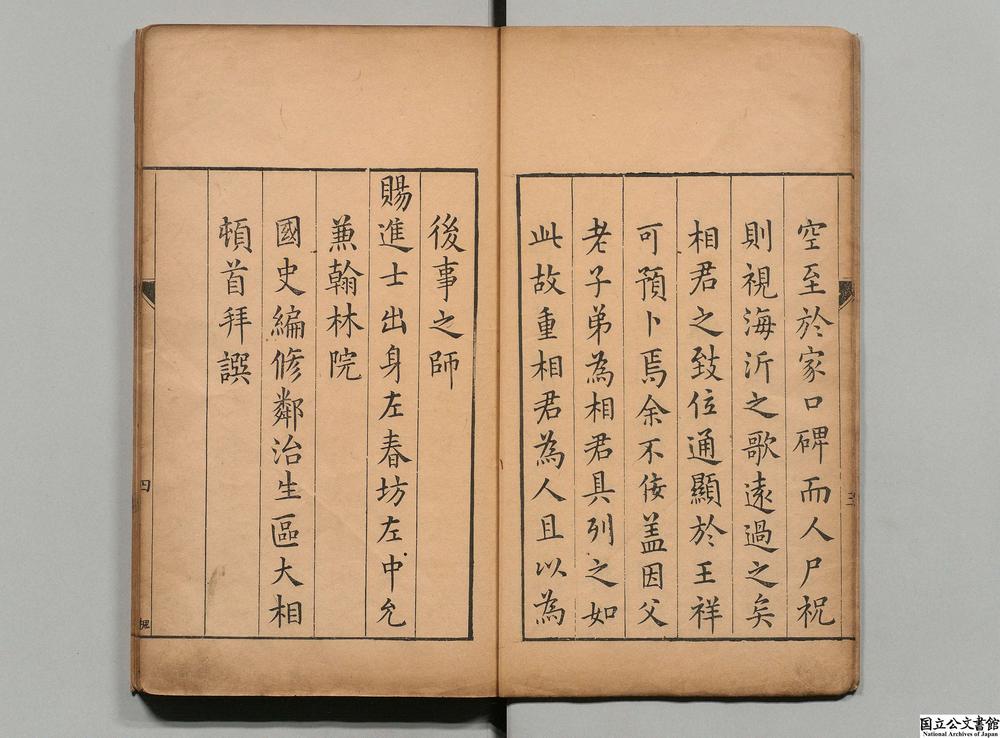 空至於家口碑而人尸祝
則視海沂之歌遠過之矣
相君之致位通顯於王祥
可預卜焉余不佞盖因父
老子弟為相君具列之如
此故重相君為人且以為
三
後事之師
賜進士出身左春坊左中允
兼翰林院
國史編修鄰治生區大相
頓首拜譔
四
国立公文書館
National Archives of Japan